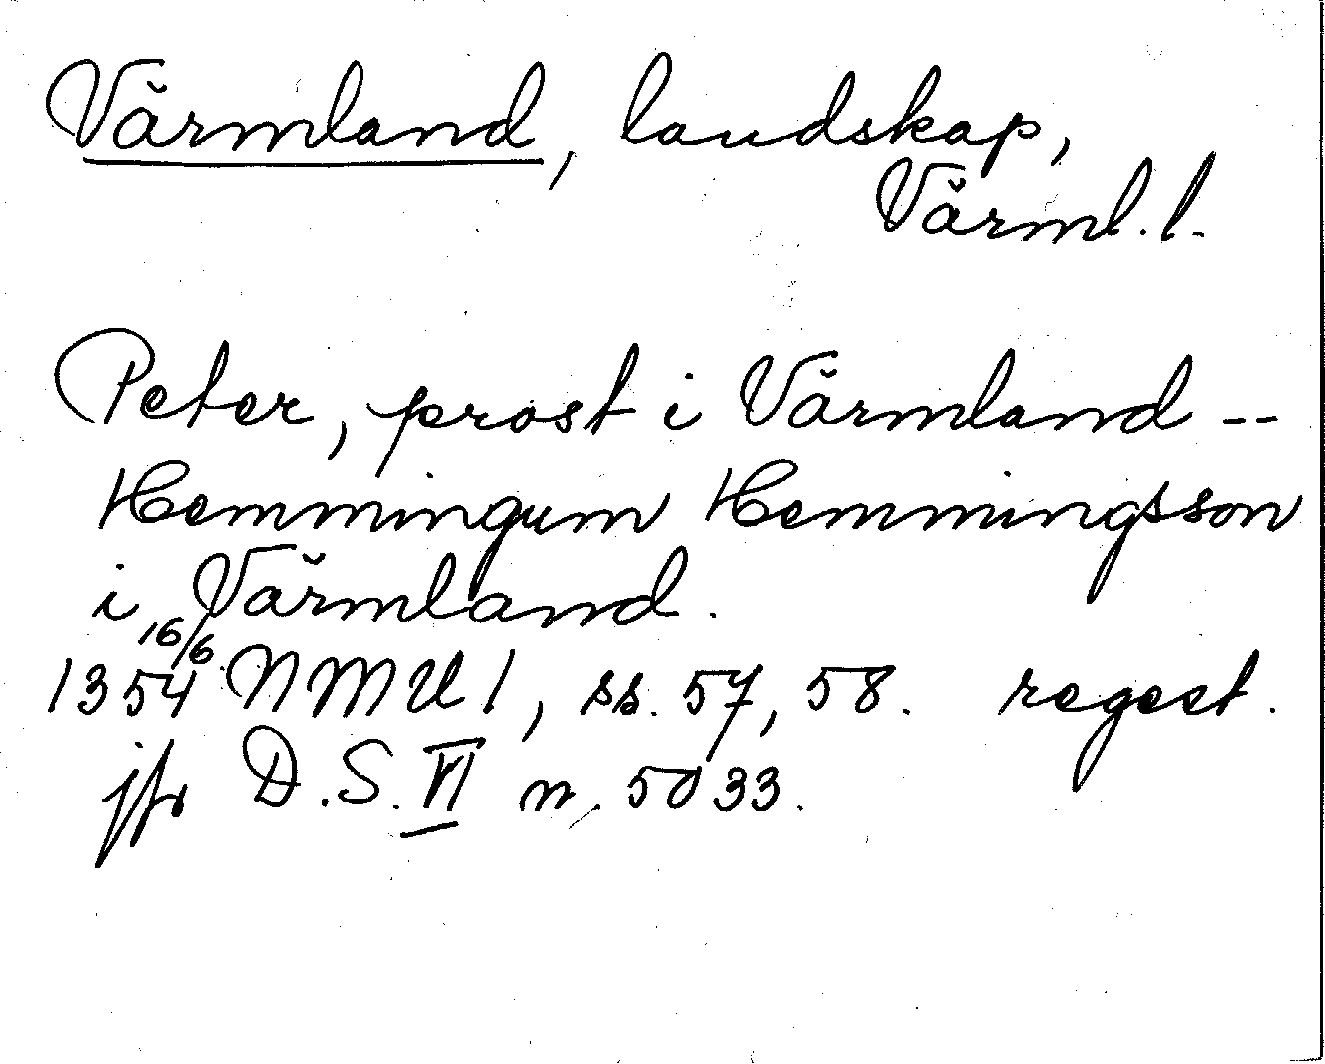 Värmland, landskap,
Värml. l.
Peter, prost i Värmland --
Hemmingum Hemmingsson
i Värmland.
1354 16/6 NMU 1, ss. 57, 58. regest.
jfr D.S. VI n. 5033.